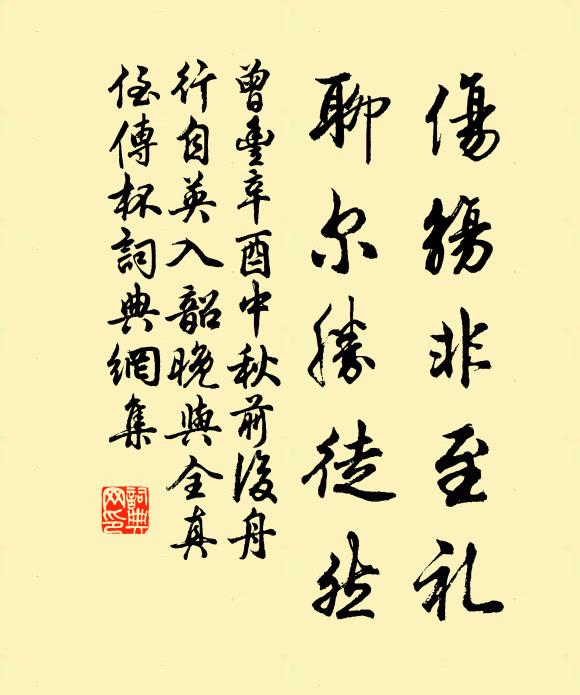 傷觴非至礼
聊尔勝徒然
曾豐辛酉中秋前後舟
行自英入韶晚與全真
侄傳杯詞典網集
詞典
网印